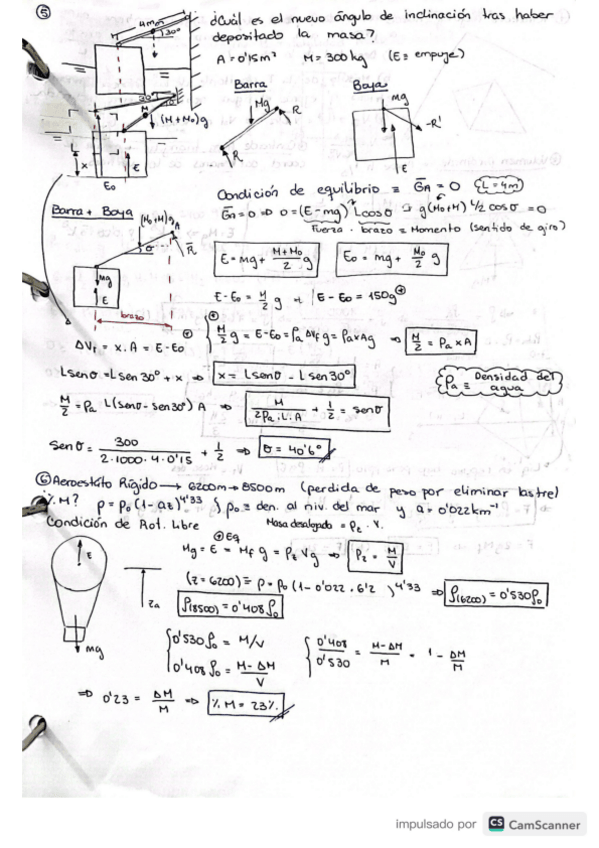 ⑤ ¿Cuál es el nuevo ángulo de inclinación tras haber
depositado la masa?
4 m
30°
A = 0'15 m² M = 300 kg (E ≡ empuje)
Barra Boya
Mg R R
mg -R' E
30° M
(M+M₀)g
x E
E₀
Condición de equilibrio ≡ ḠA = 0 (L = 4m)
ḠA = 0 ⇒ 0 = (E - mg) L cos σ - g(M₀+M) L/2 cos σ = 0
Fuerza · brazo = Momento (sentido de giro)
Barra + Boya
(M₀+M)g A
σ R̄
mg
E
brazo
E = mg + (M+M₀)/2 g
E₀ = mg + M₀/2 g
E - E₀ = M/2 g → E - E₀ = 150g
ΔVf = x · A = E - E₀
M/2 g = E - E₀ = ρa ΔVf g = ρa x A g ⇒ M/2 = ρa x A
L sen σ = L sen 30° + x ⇒ x = L sen σ - L sen 30°
ρa ≡ Densidad del agua
M/2 = ρa L (sen σ - sen 30°) A ⇒ M/(2ρa · L · A) + 1/2 = sen σ
sen σ = 300/(2 · 1000 · 4 · 0'15) + 1/2 ⇒ σ = 40'6°
⑥ Aeroestato Rígido → 6200m → 8500m (perdida de peso por eliminar lastre)
¿% M? ρ = ρ₀ (1 - az)^4'33 { ρ₀ ≡ den. al niv. del mar y a = 0'022 km⁻¹
Condición de Flot. Libre Masa desalojada = ρz · V.
Eq
Mg = E = Mf g = ρz V g ⇒ ρz = M/V
E
za
mg
(z = 6200) ≡ ρ = ρ₀ (1 - 0'022 · 6'2)^4'33 ⇒ ρ(6200) = 0'530ρ₀
ρ(8500) = 0'408ρ₀
{ 0'530ρ₀ = M/V
0'408ρ₀ = (M - ΔM)/V
{ 0'408/0'530 = (M - ΔM)/M = 1 - ΔM/M
⇒ 0'23 = ΔM/M ⇒ % M = 23%
impulsado por CS CamScanner